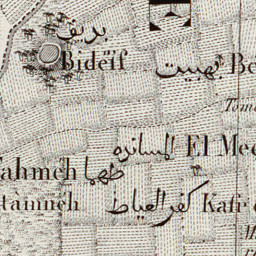 بديف
Bideïf بهبيت
المسانده El Mee
ahmeh طهما
tàmneh كفر العياط Kafr